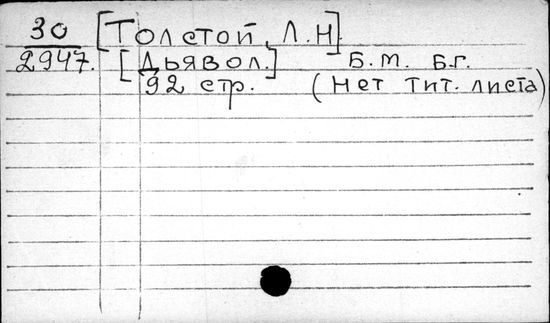 30 [Толстой, Л.Н].
2947. [Дьявол.] Б.м. Б.г.
92 стр. (Нет тит. листа)